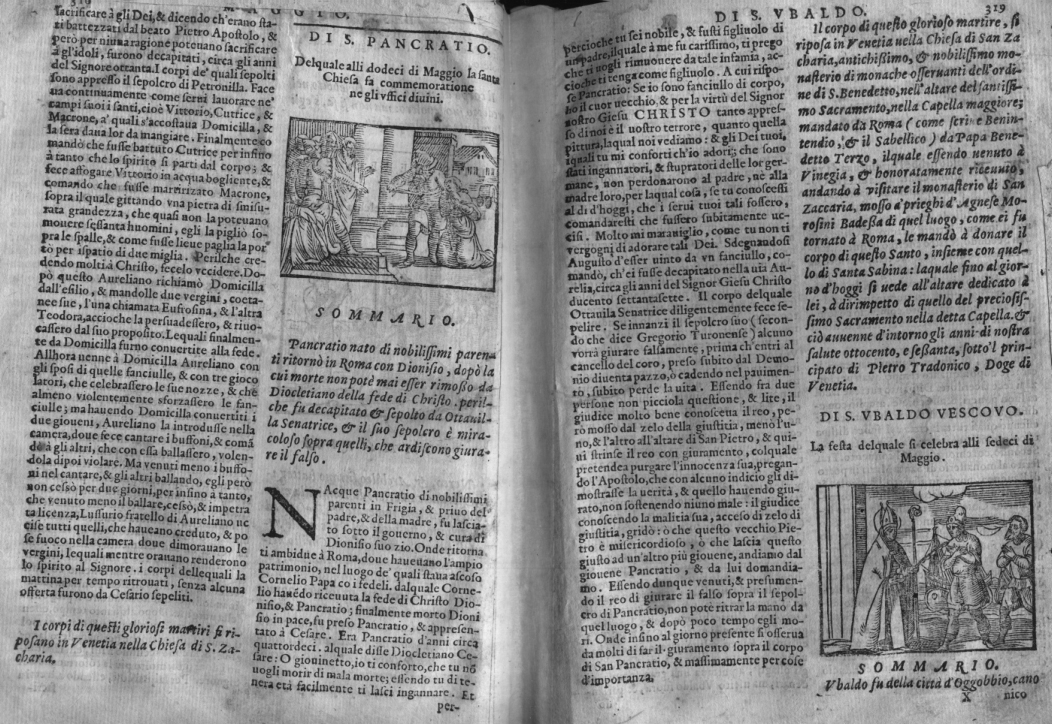 319
MAGGIO.
sacrificare à gli Dei,& dicendo ch'erano sta-
ti battezzati dal beato Pietro Apostolo, &
però per niuna ragione poteuano sacrificare
à gl'idoli, furono decapitati, circa gli anni
del Signore ottanta. I corpi de' quali sepolti
sono appresso il sepolcro di Petronilla. Face
ua continuamente come serui lauorare ne'
campi suoi i santi, cioè Vittorio, Cutrice, &
Macrone, a' quali s'accostaua Domicilla, &
la sera daua lor da mangiare. Finalmente co
mandò che fusse battuto Cutrice per infino
à tanto che lo spirito si partì dal corpo; &
fece affogare Vittorio in acqua bogliente, &
comando che fusse martirizato Macrone,
sopra il quale gittando vna pietra di smisu-
rata grandezza, che quasi non la poteuano
mouere sessanta huomini, egli la pigliò so-
pra le spalle, & come fusse lieue paglia la por
tò per ispatio di due miglia. Perilche cre-
dendo molti à Christo, fecelo vccidere. Do-
pò questo Aureliano richiamò Domicilla
dall'esilio, & mandolle due vergini, coeta-
nee sue, l'una chiamata Eufrosina, & l'altra
Teodora, accioche la persuadessero, & riuo-
cassero dal suo proposito. Lequali finalmen-
te da Domicilla furno conuertite alla fede.
Allhora uenne à Domicilla Aureliano con
gli sposi di quelle fanciulle, & con tre gioco
latori, che celebrassero le sue nozze, & che
almeno violentemente sforzassero le fan-
ciulle; ma hauendo Domicilla conuertiti i
due gioueni, Aureliano la introdusse nella
camera, doue fece cantare i buffoni, & comã
dò à gli altri, che con essa ballassero, volen-
dola dipoi violare. Ma venuti meno i buffo-
ni nel cantare, & gli altri ballando, egli però
non cessò per due giorni, per insino à tanto,
che venuto meno il ballare, cessò, & impetra
ta licenza, Lussurio fratello di Aureliano uc
cise tutti quelli, che haueano creduto, & po
se fuoco nella camera doue dimorauano le
vergini, lequali mentre orauano renderono
lo spirito al Signore. i corpi dellequali la
mattina per tempo ritrouati, senza alcuna
offerta furono da Cesario sepeliti.
I corpi di questi gloriosi martiri si ri-
posano in Venetia nella Chiesa di S. Za-
charia.
DI S. PANCRATIO.
Delquale alli dodeci di Maggio la santa
Chiesa fa commemoratione
ne gli vffici diuini.
SOMMARIO.
Pancratio nato di nobilissimi paren-
ti ritornò in Roma con Dionisio, dopò la
cui morte non potè mai esser rimosso da
Diocletiano della fede di Christo. peril-
che fu decapitato & sepolto da Ottauil-
la Senatrice, & il suo sepolcro è mira-
coloso sopra quelli, che ardiscono giura-
re il falso.
NAcque Pancratio di nobilissimi
parenti in Frigia, & priuo del
padre, & della madre, fu lascia-
to sotto il gouerno, & cura di
Dionisio suo zio. Onde ritorna
ti ambidue à Roma, doue haueuano l'ampio
patrimonio, nel luogo de' quali staua ascoso
Cornelio Papa co i fedeli. dalquale Corne-
lio hauẽdo riceuuta la fede di Christo Dio-
nisio, & Pancratio; finalmente morto Dioni
sio in pace, fu preso Pancratio, & appresen-
tato à Cesare. Era Pancratio d'anni circa
quattordeci. alquale disse Diocletiano Ce-
sare: O giouinetto, io ti conforto, che tu nõ
uogli morir di mala morte; essendo tu di te-
nera età facilmente ti lasci ingannare. Et
per-
DI S. VBALDO.
319
percioche tu sei nobile, & fusti figliuolo di
un padre, ilquale à me fu carissimo, ti prego
che ti uogli rimuouere da tale infamia, ac-
cioche ti tenga come figliuolo. A cui rispo-
se Pancratio: Se io sono fanciullo di corpo,
ho il cuor uecchio, & per la virtù del Signor
nostro Giesu CHRISTO tanto appres-
so di noi è il uostro terrore, quanto quella
pittura, laqual noi vediamo: & gli Dei tuoi,
iquali tu mi conforti ch'io adori; che sono
stati ingannatori, & stupratori delle lor ger-
mane, non perdonarono al padre, nè alla
madre loro, per laqual cosa, se tu conoscessi
al dì d'hoggi, che i serui tuoi tali fossero,
comandaresti che fussero subitamente uc-
cisi. Molto mi marauiglio, come tu non ti
vergogni di adorare tali Dei. Sdegnandosi
Augusto d'esser uinto da vn fanciullo, co-
mandò, ch'ei fusse decapitato nella uia Au-
relia, circa gli anni del Signor Giesu Christo
ducento settantasette. Il corpo delquale
Ottauila Senatrice diligentemente fece se-
pelire. Se innanzi il sepolcro suo (secon-
do che dice Gregorio Turonense) alcuno
vorrà giurare falsamente, prima ch'entri al
cancello del coro, preso subito dal Demo-
nio diuenta pazzo, ò cadendo nel pauimen-
to, subito perde la uita. Essendo fra due
persone non picciola questione, & lite, il
giudice molto bene conosceua il reo, pe-
rò mosso dal zelo della giustitia, menò l'u-
no, & l'altro all'altare di San Pietro, & qui-
ui strinse il reo con giuramento, colquale
pretendea purgare l'innocenza sua, pregan-
do l'Apostolo, che con alcuno indicio gli di-
mostrasse la uerità, & quello hauendo giu-
rato, non sostenendo niuno male: il giudice
conoscendo la malitia sua, acceso di zelo di
giustitia, gridò: ò che questo vecchio Pie-
tro è misericordioso, ò che lascia questo
giusto ad un'altro più giouene, andiamo dal
giouene Pancratio, & da lui domandia-
mo. Essendo dunque venuti, & presumen-
do il reo di giurare il falso sopra il sepol-
cro di Pancratio, non potè ritrar la mano da
quel luogo, & dopò poco tempo egli mo-
rì. Onde insino al giorno presente si osserua
da molti di far il giuramento sopra il corpo
di San Pancratio, & massimamente per cose
d'importanza.
Il corpo di questo glorioso martire, si
riposa in Venetia nella Chiesa di San Za
charia, antichissimo, & nobilissimo mo-
nasterio di monache osseruanti dell'ordi-
ne di S. Benedetto, nell'altare del santissi-
mo Sacramento, nella Capella maggiore;
mandato da Roma (come scriue Benin-
tendio, & il Sabellico) da Papa Bene-
detto Terzo, ilquale essendo uenuto à
Vinegia, & honoratamente riceuuto,
andando à visitare il monasterio di San
Zaccaria, mosso à prieghi d'Agnese Mo-
rosini Badessa di quel luogo, come ei fu
tornato à Roma, le mandò à donare il
corpo di questo Santo, insieme con quel-
lo di Santa Sabina: laquale fino al gior-
no d'hoggi si uede all'altare dedicato à
lei, à dirimpetto di quello del preciosis-
simo Sacramento nella detta Capella. &
ciò auuenne d'intorno gli anni di nostra
salute ottocento, e sessanta, sotto'l prin-
cipato di Pietro Tradonico, Doge di
Venetia.
DI S. VBALDO VESCOVO.
La festa delquale si celebra alli sedeci di
Maggio.
SOMMARIO.
Vbaldo fu della città d'Oggobbio, cano
X
nico